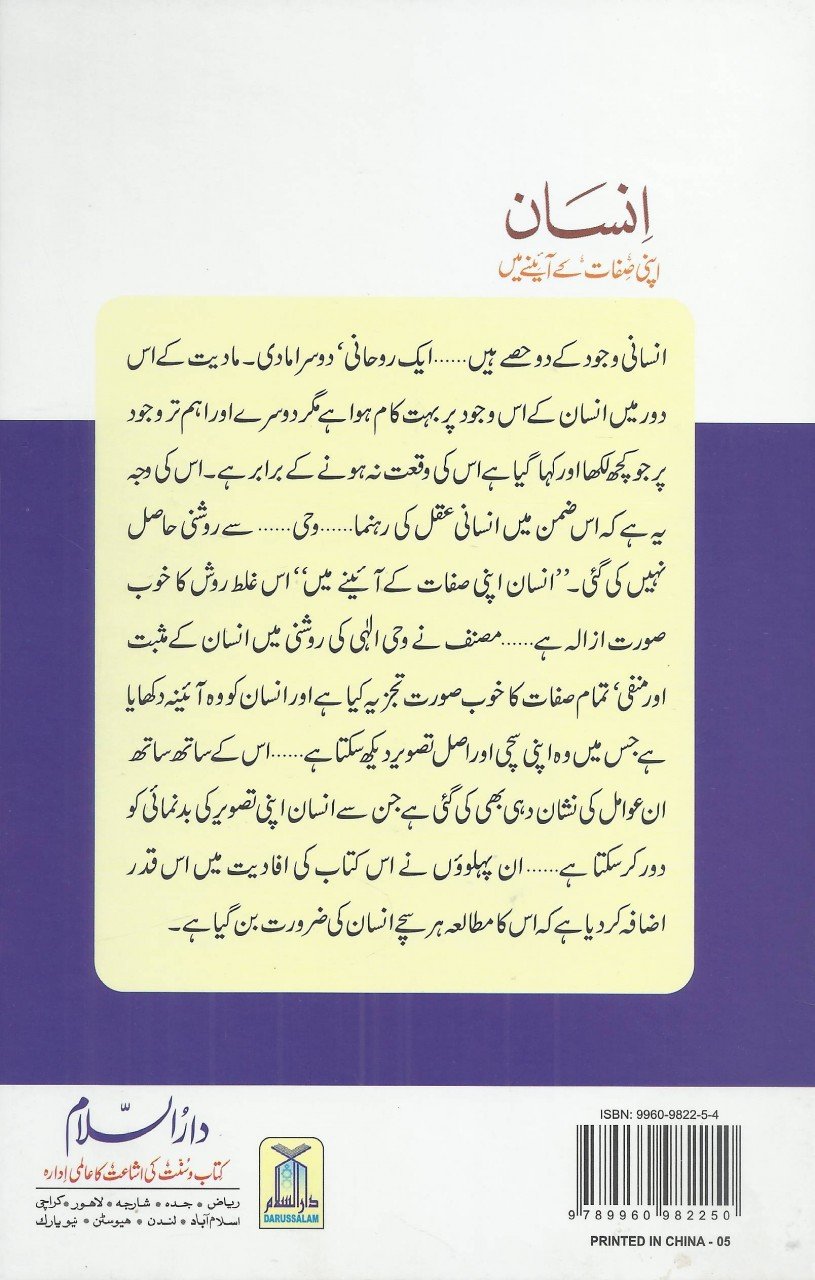 اِنسَان
اپنی صِفات کے آئینے میں
انسانی وجود کے دو حصے ہیں......ایک روحانی‘ دوسرا مادی۔ مادیت کے اس
دور میں انسان کے اس وجود پر بہت کام ہوا ہے مگر دوسرے اور اہم تر وجود
پر جو کچھ لکھا اور کہا گیا ہے اس کی وقعت نہ ہونے کے برابر ہے۔ اس کی وجہ
یہ ہے کہ اس ضمن میں انسانی عقل کی رہنما......وحی...... سے روشنی حاصل
نہیں کی گئی۔ ’’انسان اپنی صفات کے آئینے میں‘‘ اس غلط روش کا خوب
صورت ازالہ ہے......مصنف نے وحی الٰہی کی روشنی میں انسان کے مثبت
اور منفی‘ تمام صفات کا خوب صورت تجزیہ کیا ہے اور انسان کو وہ آئینہ دکھایا
ہے جس میں وہ اپنی سچی اور اصل تصویر دیکھ سکتا ہے......اس کے ساتھ ساتھ
ان عوامل کی نشان دہی بھی کی گئی ہے جن سے انسان اپنی تصویر کی بدنمائی کو
دور کر سکتا ہے......ان پہلوؤں نے اس کتاب کی افادیت میں اس قدر
اضافہ کر دیا ہے کہ اس کا مطالعہ ہر سچے انسان کی ضرورت بن گیا ہے۔
دارُالسّلام
کتاب و سُنّت کی اشاعت کا عالمی اِدارہ
ریاض • جدہ • شارجہ • لاہور • کراچی
اسلام آباد • لندن • ہیوسٹن • نیو یارک
دارالسلام
DARUSSALAM
ISBN: 9960-9822-5-4
9 789960 982250
PRINTED IN CHINA - 05